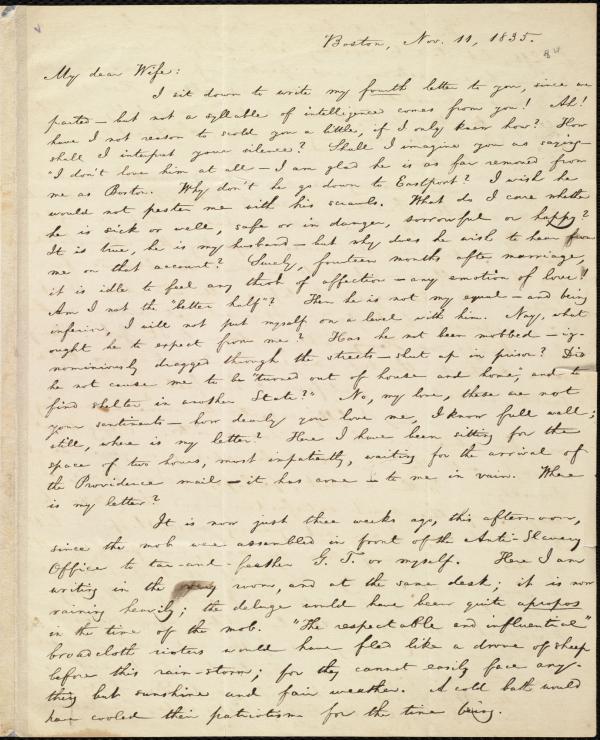 Boston, Nov. 11, 1835.
My dear Wife:
I sit down to write my fourth letter to you, since we
parted — but not a syllable of intelligence comes from you! Ah!
have I not reason to scold you a little, if I only knew how? How
shall I interpret your silence? Shall I imagine you as saying—
"I don't love him at all — I am glad he is as far removed from
me as Boston. Why don't he go down to Eastport? I wish he
would not pester me with his scrawls. What do I care whether
he is sick or well, safe or in danger, sorrowful or happy?
It is true, he is my husband — but why does he wish to hear from
me on that account? Surely, fourteen months after marriage,
it is idle to feel any throb of affection — any emotion of love!
Am I not the "better half"? Then he is not my equal — and being
inferior, I will not put myself on a level with him. Nay, what
ought he to expect from me? Has he not been mobbed — ig-
nominiously dragged through the streets — shut up in prison? Did
he not cause me to be "turned out of house and home," and to
find shelter in another State?" No, my love, these are not
your sentiments — how dearly you love me, I know full well;
still, where is my letter? Here I have been sitting for the
space of two hours, most impatiently, waiting for the arrival of
the Providence mail — it has come — to me in vain. Where
is my letter?
It is now just three weeks ago, this afternoon,
since the mob were assembled in front of the Anti-Slavery
Office to tar-and-feather G. T. or myself. Here I am
writing in the very room, and at the same desk; it is now
raining heavily; the deluge would have been quite apropos
in the time of the mob. "The respectable and influential"
broadcloth rioters would have fled like a drove of sheep
before this rain-storm; for they cannot easily face any-
thing but sunshine and fair weather. A cold bath would
have cooled their patriotism for the time being.